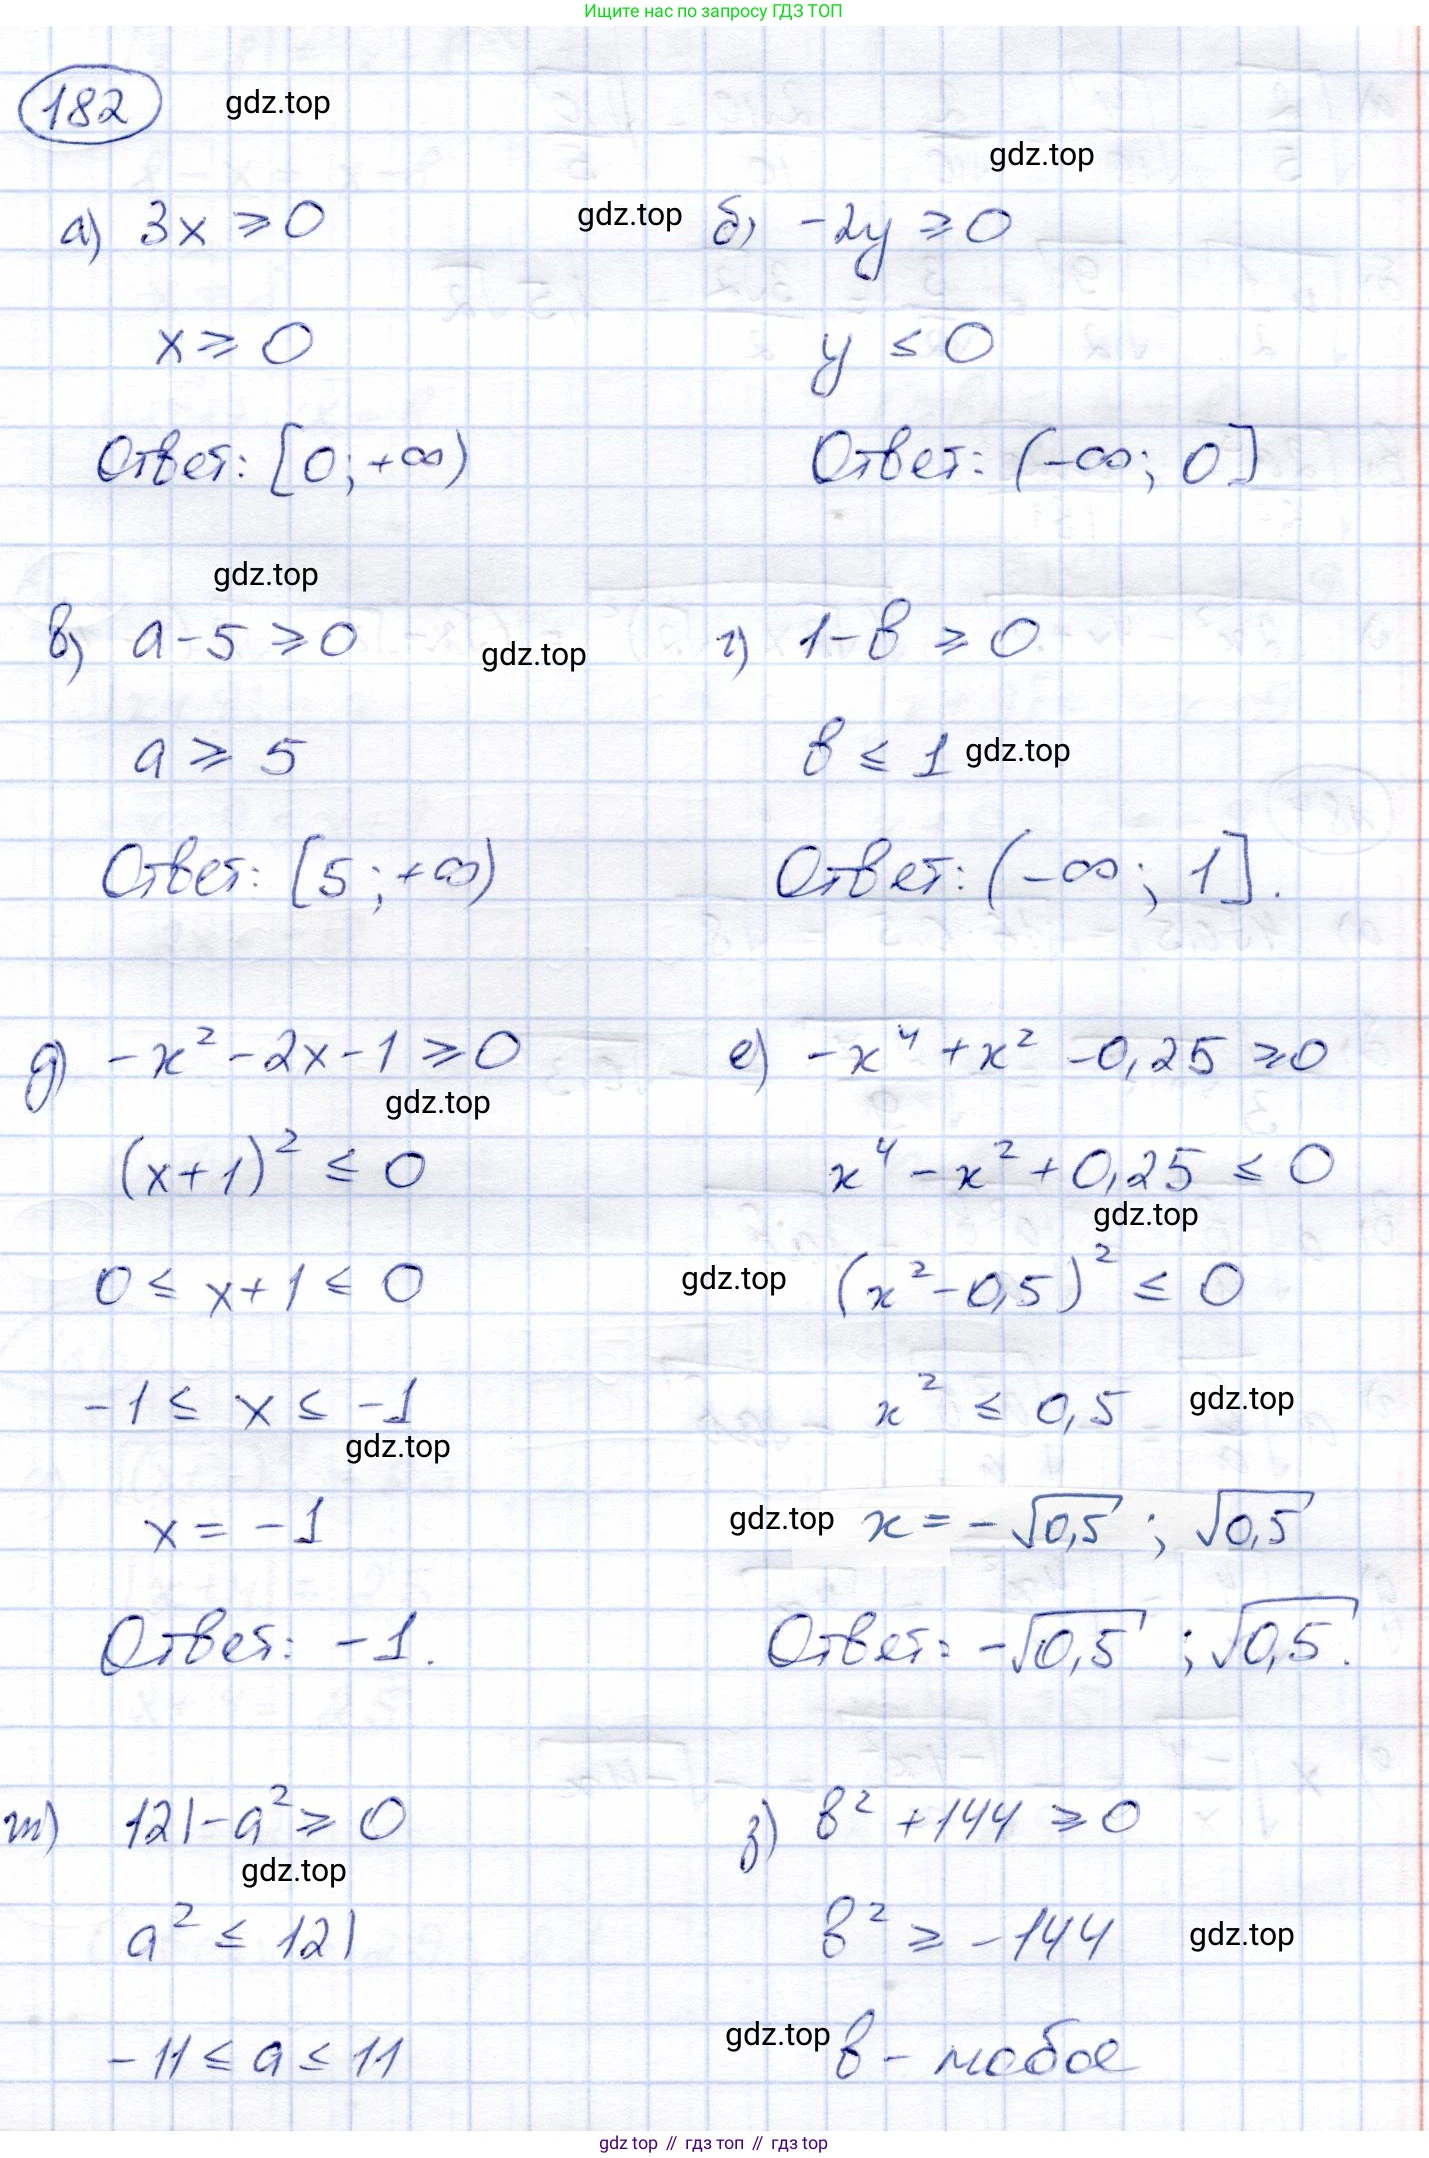 Ищите нас по запросу ГДЗ ТОП
182
gdz.top
gdz.top
а) 3x ⩾ 0
gdz.top
б) -2y ⩾ 0
x ⩾ 0
y ≤ 0
Ответ: [0; +∞)
Ответ: (-∞; 0]
gdz.top
в) a - 5 ⩾ 0
gdz.top
г) 1 - b ⩾ 0
a ⩾ 5
b ≤ 1
gdz.top
Ответ: [5; +∞)
Ответ: (-∞; 1].
д) -x² - 2x - 1 ⩾ 0
gdz.top
е) -x⁴ + x² - 0,25 ⩾ 0
(x+1)² ≤ 0
x⁴ - x² + 0,25 ≤ 0
gdz.top
0 ≤ x+1 ≤ 0
gdz.top
(x² - 0,5)² ≤ 0
-1 ≤ x ≤ -1
gdz.top
x² ≤ 0,5
gdz.top
x = -1
gdz.top
x = -√0,5 ; √0,5
Ответ: -1.
Ответ: -√0,5 ; √0,5.
ж) 121 - a² ⩾ 0
gdz.top
з) b² + 144 ⩾ 0
a² ≤ 121
b² ⩾ -144
gdz.top
-11 ≤ a ≤ 11
gdz.top
b - любое
gdz top // гдз топ // gdz.top